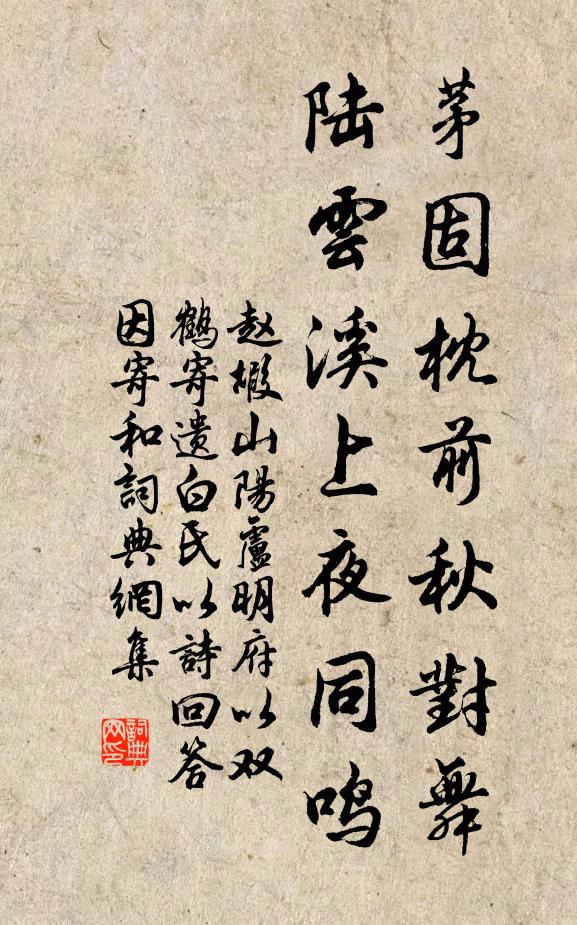 茅固枕前秋對舞
陆雲溪上夜同鸣
赵嘏山陽盧明府以双
鶴寄遗白氏以詩回答
因寄和詞典網集
詞典网印